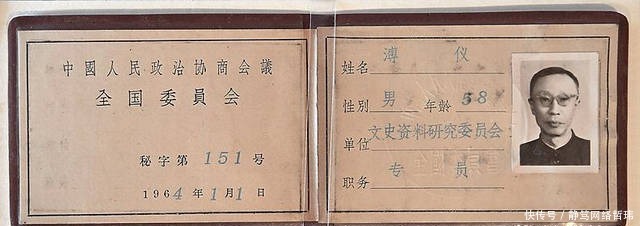 中國人民政治协商会議
全国委員会
秘字第 151 号
1964 年 1 月 1 日
姓名 溥 仪
性別 男 年龄 58
单位 文史资料研究委员会
职务 专 员
快传号 / 静笃网络哲瑞